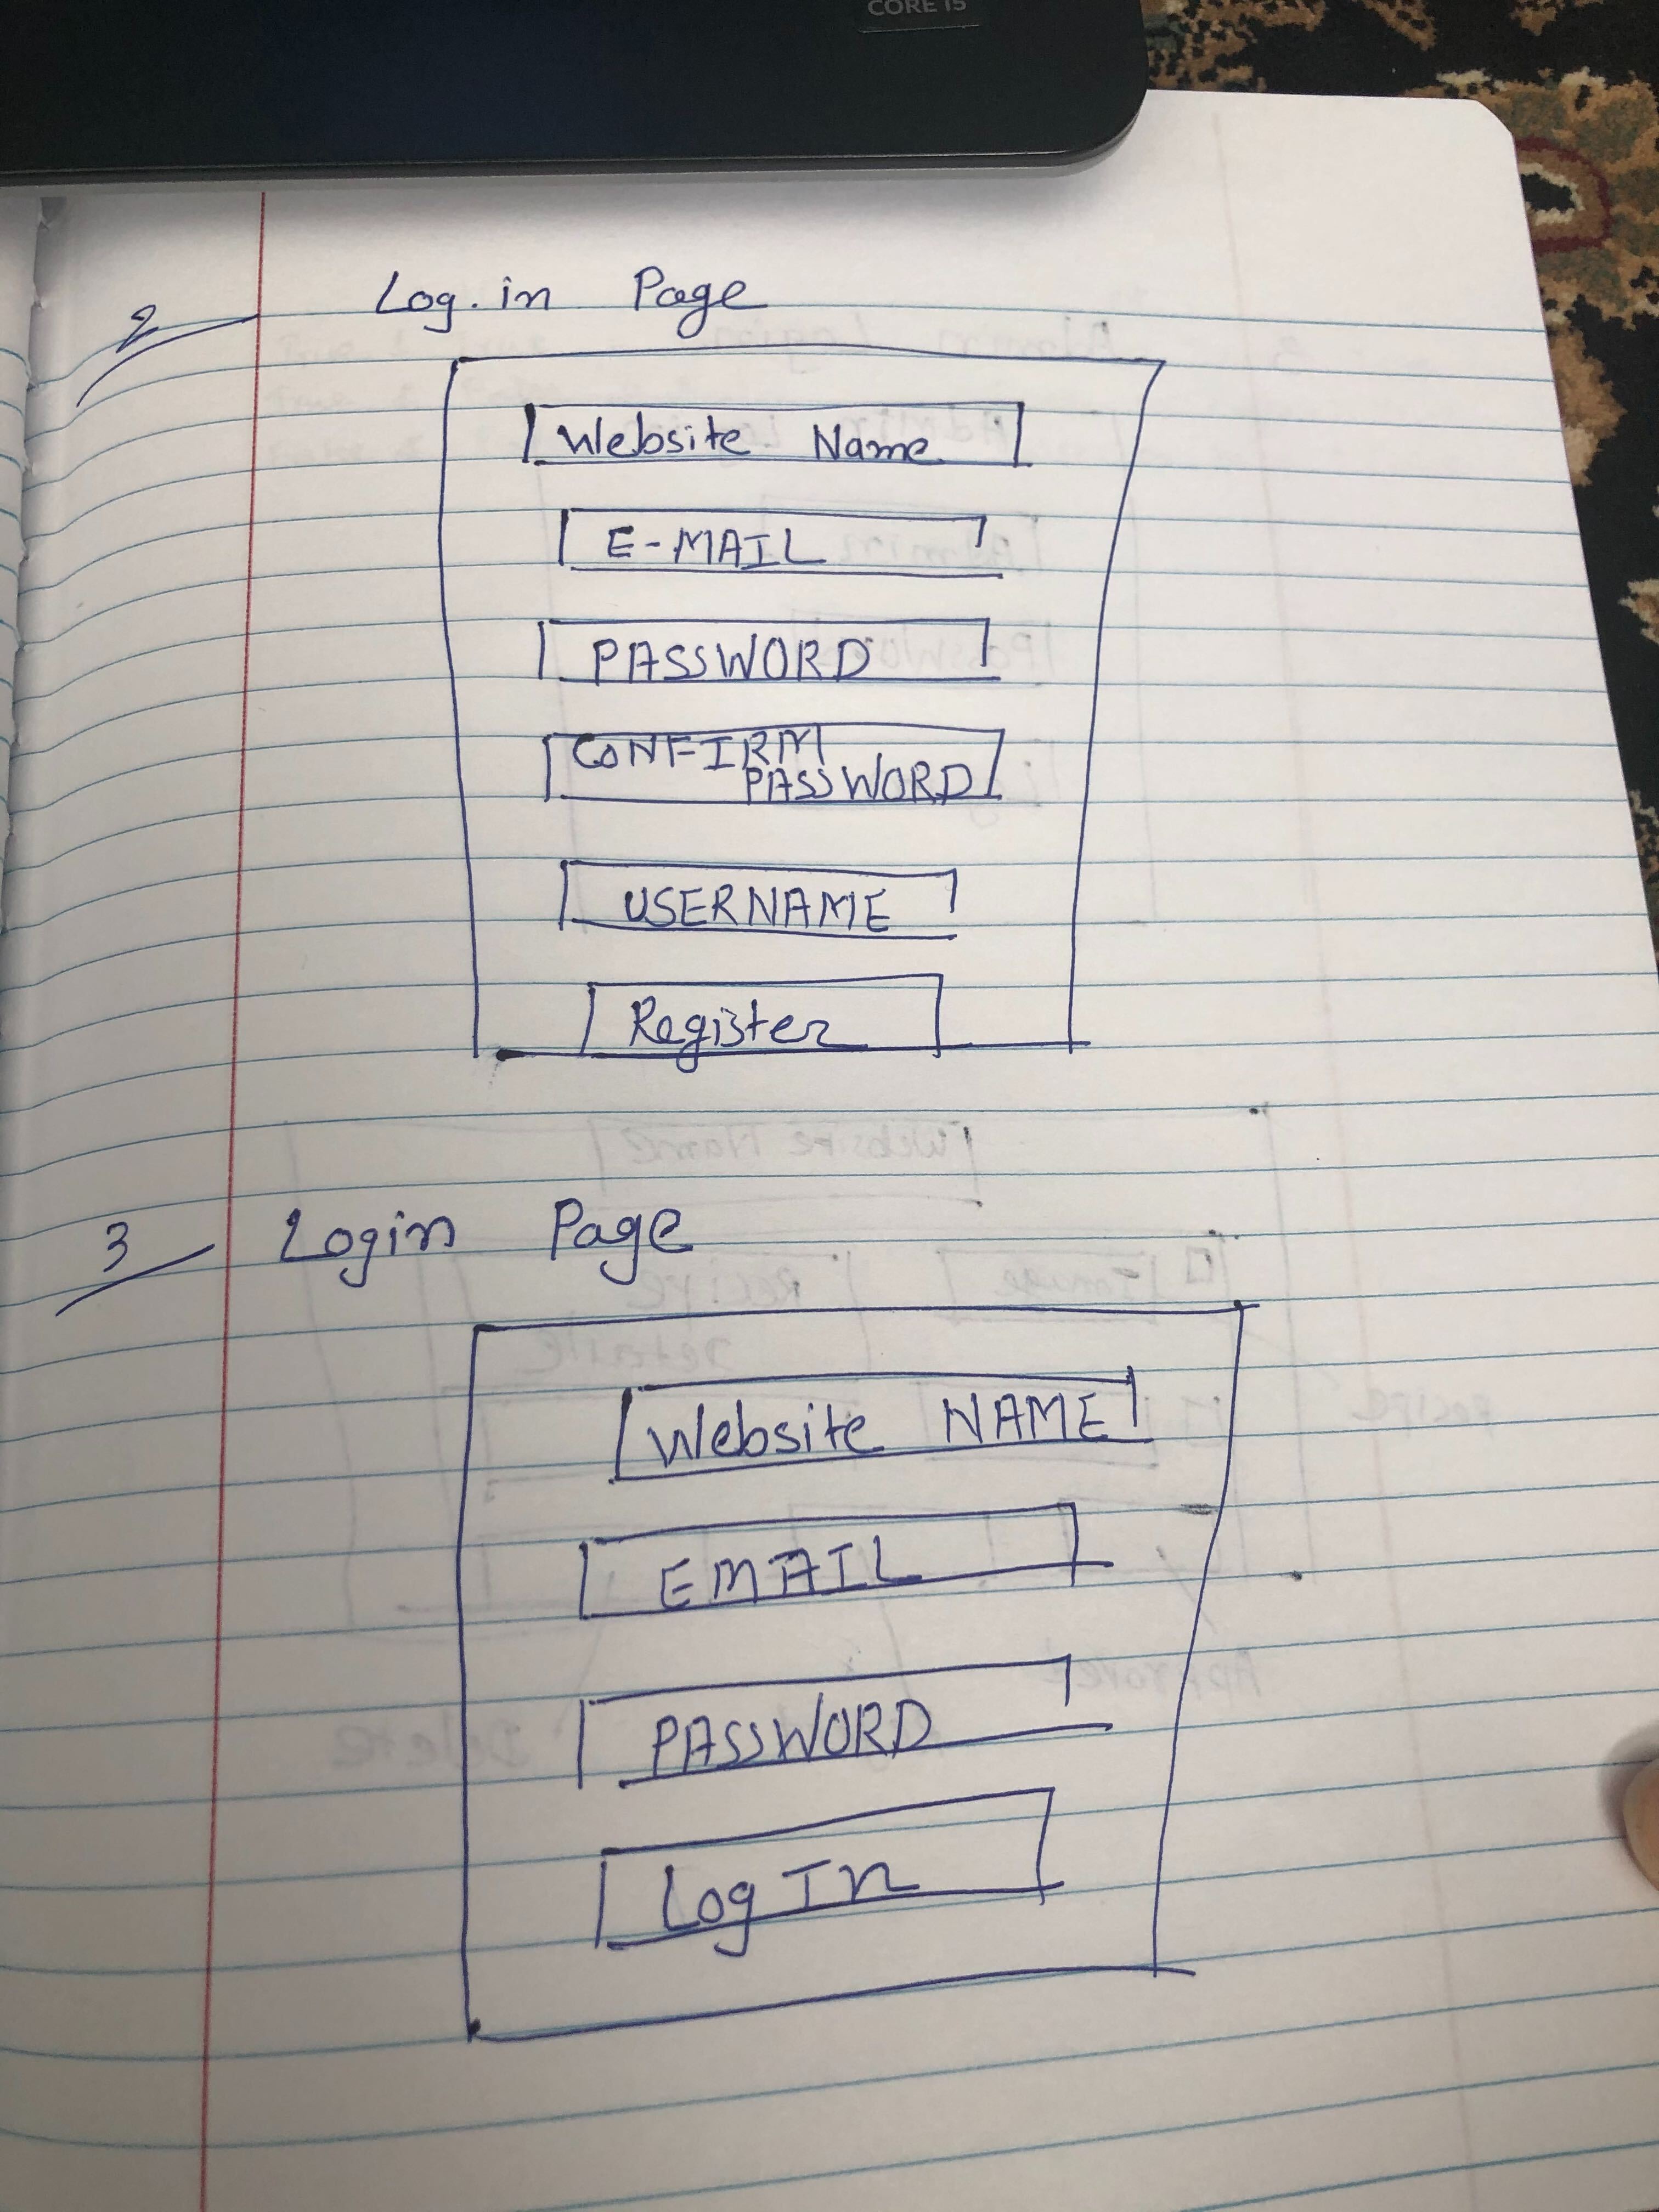 CORE i5
2 Log.in Page
Website Name
E-MAIL
PASSWORD
CONFIRM
PASSWORD
USERNAME
Register
3 Login Page
Website NAME
EMAIL
PASSWORD
Log In